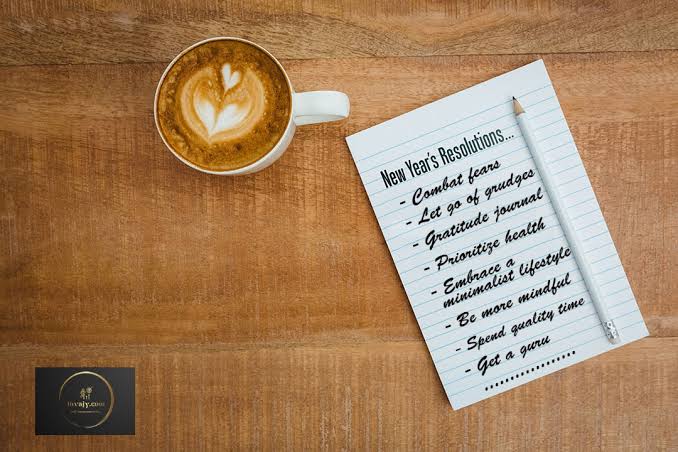 New Year's Resolutions...
- Combat fears
- Let go of grudges
- Gratitude journal
- Prioritize health
- Embrace a
minimalist lifestyle
- Be more mindful
- Spend quality time
- Get a guru
..................
invajy.com